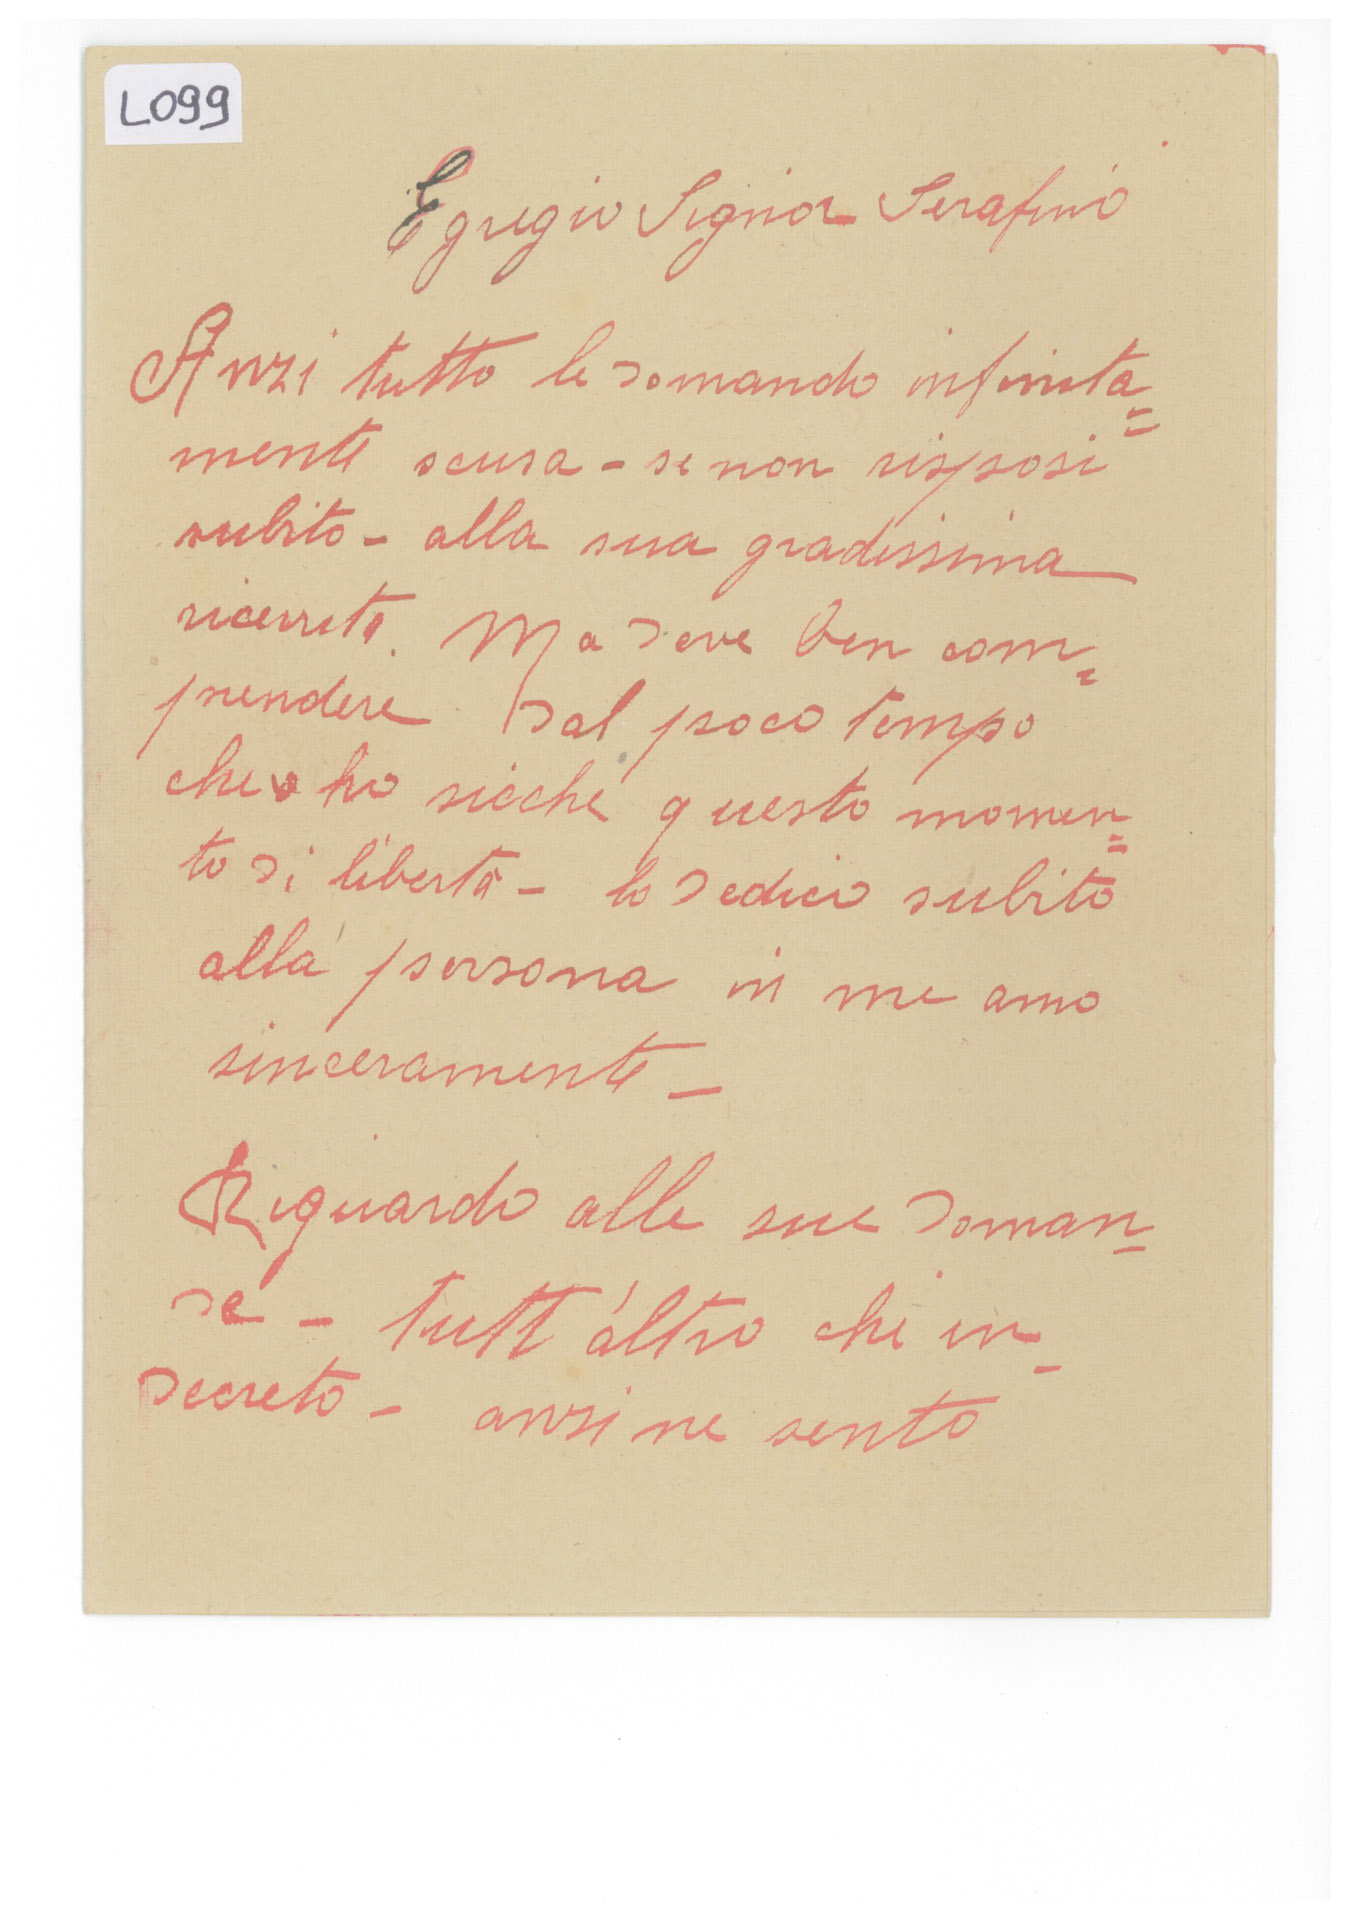 L099
Egregio Signor Serafino
Anzi tutto le domando infinita=
mente scusa - se non risposi
subito - alla sua gradissima
ricevuta. Ma deve ben com=
prendere dal poco tempo
che ho sicché questo momen=
to di libertà - lo dedico subito
alla persona in me amo
sinceramente -
Riguardo alle sue doman-
de - tutt'altro che in-
decreto - anzi ne sento